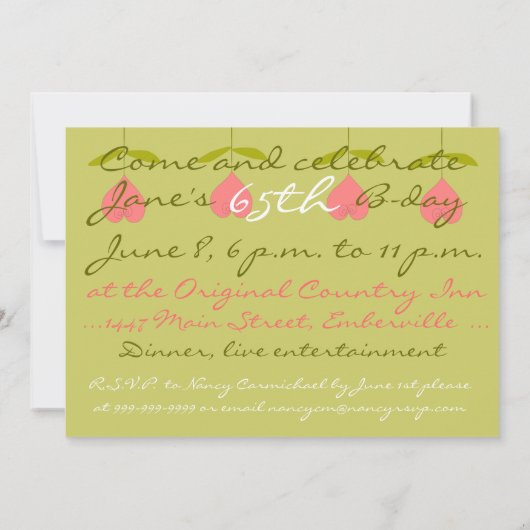 Come and celebrate
Jane's 65th B-day
June 8, 6 p.m. to 11 p.m.
at the Original Country Inn
...1447 Main Street, Emberville ...
Dinner, live entertainment
R.S.V.P. to Nancy Carmichael by June 1st please
at 999-999-9999 or email nancycm@nancyrsvp.com